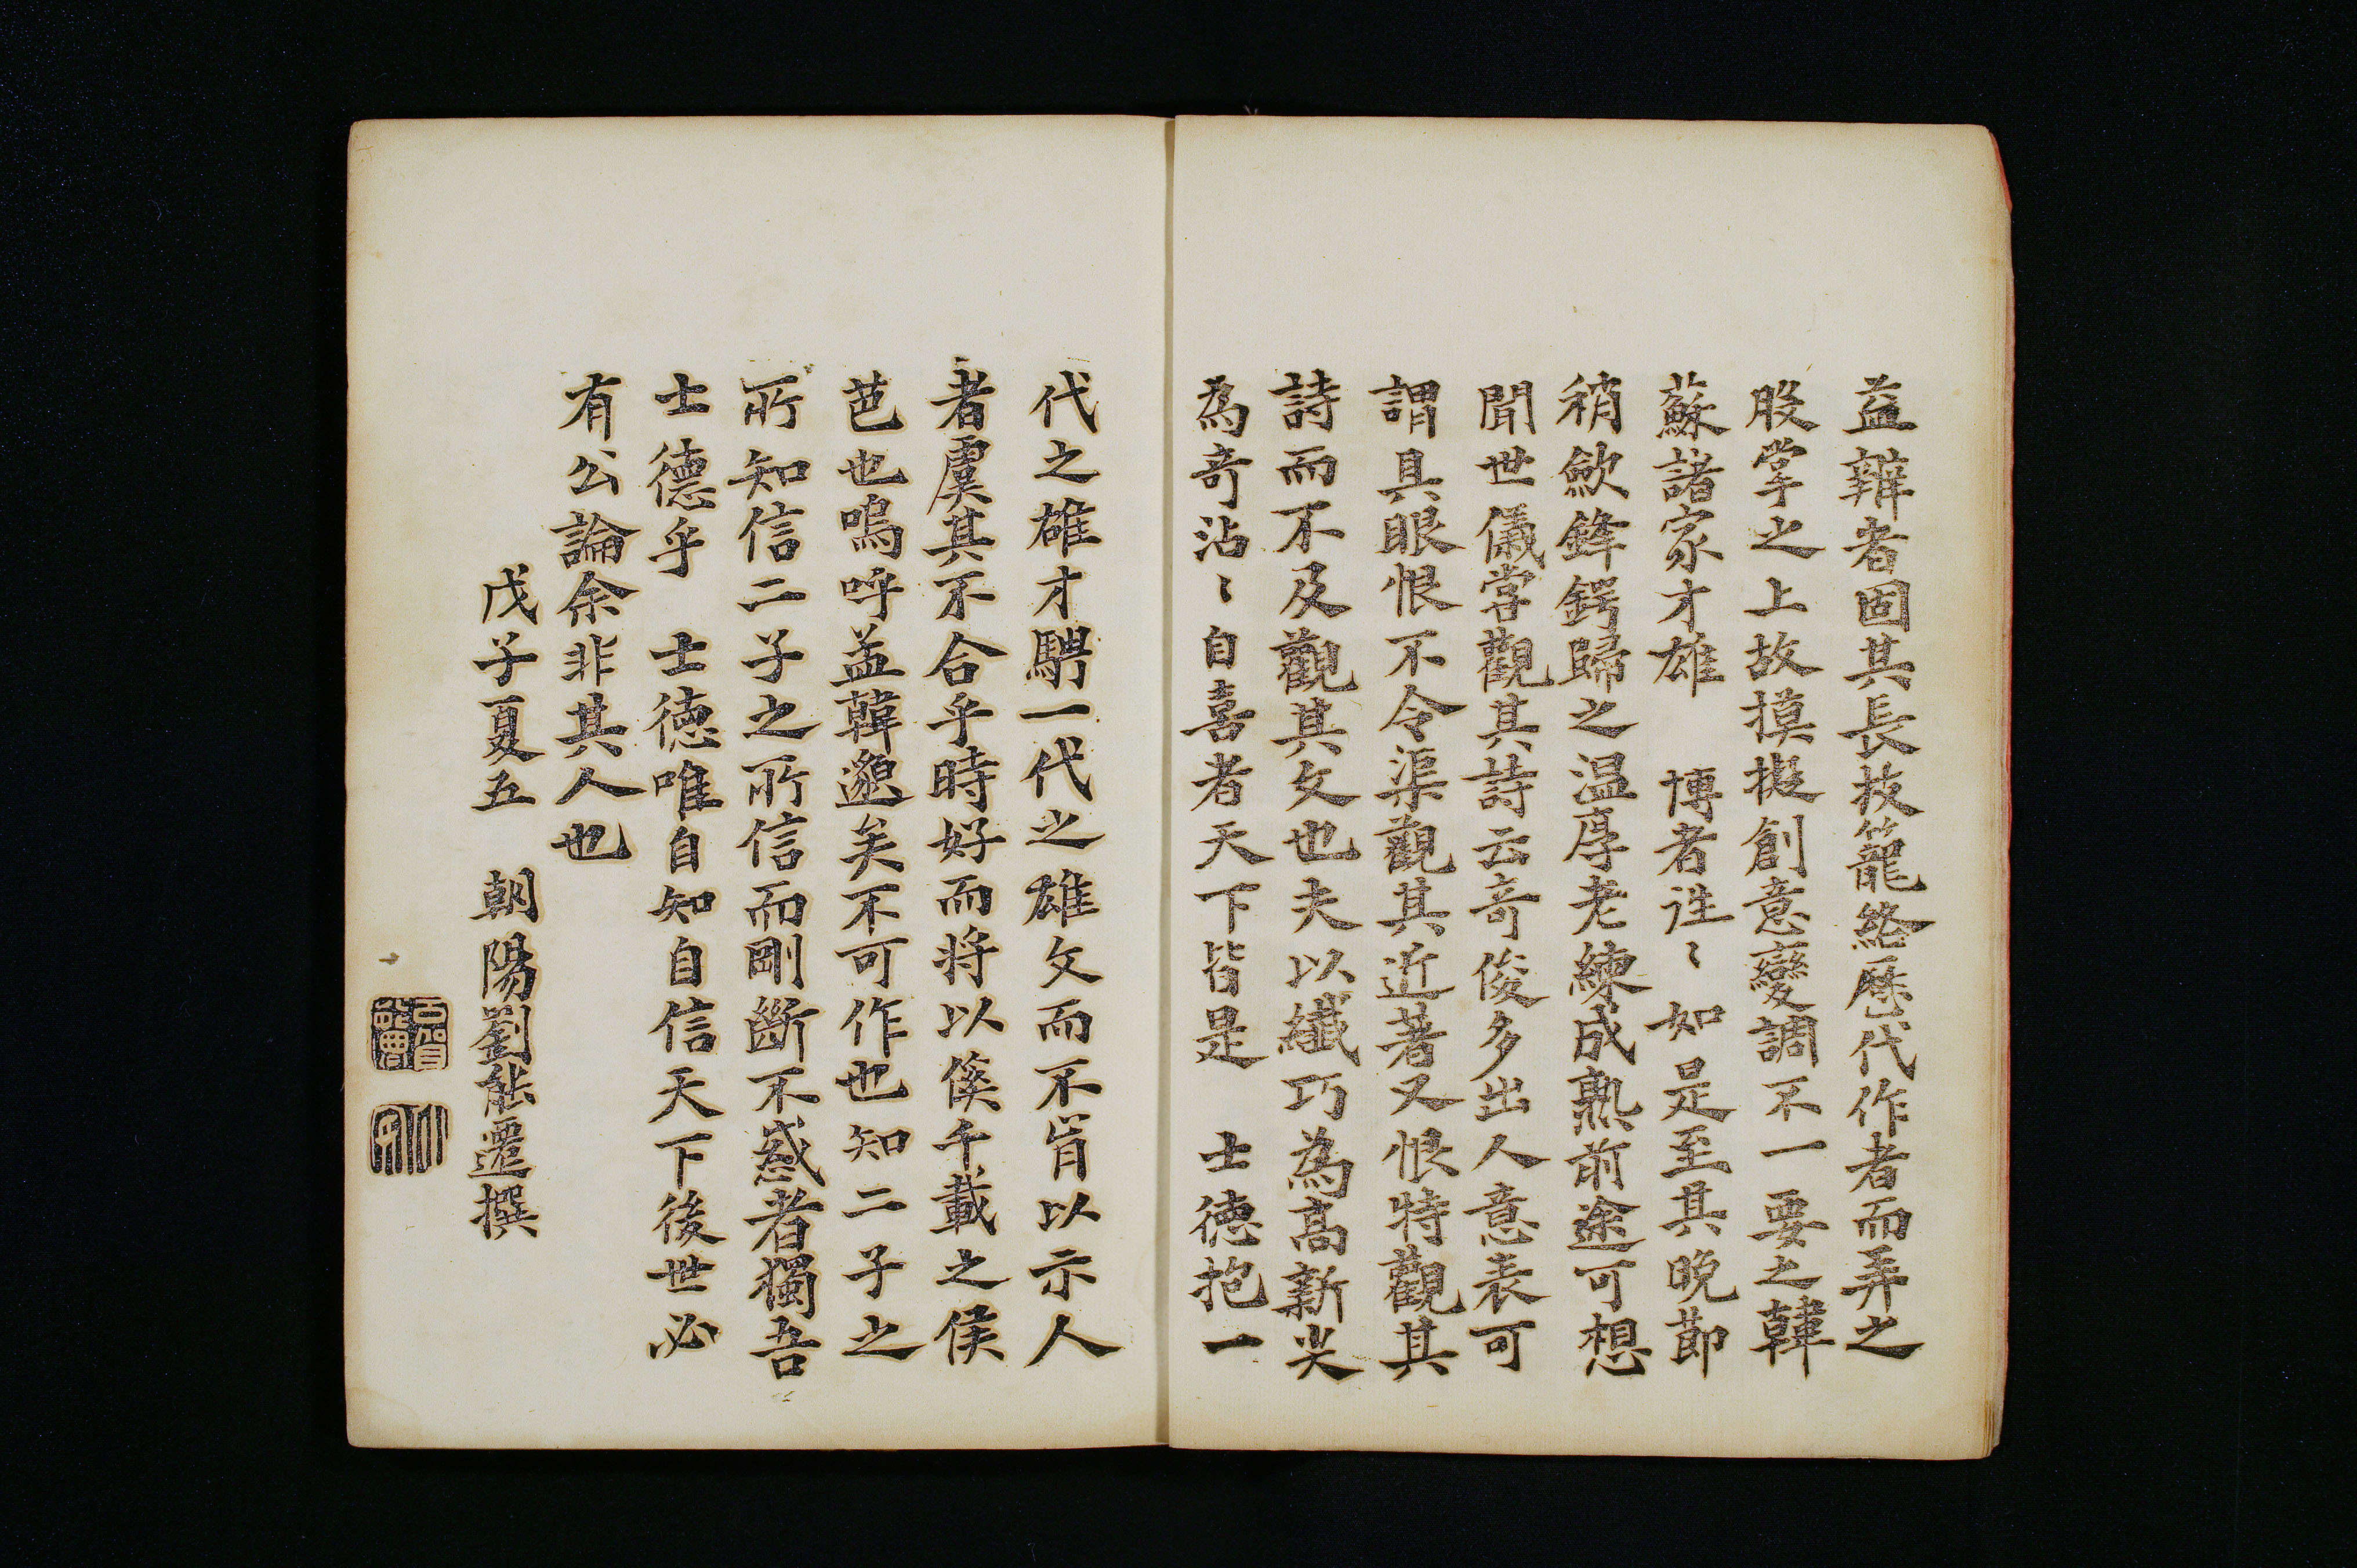 益辯者固其長技籠絡歷代作者而弄之
股掌之上故摸擬創意變調不一要之韓
蘇諸家才雄　博者泩〻如是至其晩節
稍歛鋒鍔歸之温厚老練成熟前途可想
聞世儀嘗觀其詩云奇俊多出人意表可
謂具眼恨不令渠觀其近著又恨特觀其
詩而不及觀其文也夫以纖巧為高新尖
為奇沾〻自喜者天下皆是　士德抱一
代之雄才騁一代之雄文而不肯以示人
者虞其不合乎時好而将以徯千載之侯
芭也嗚呼盖韓邈矣不可作也知二子之
所知信二子之所信而剛斷不惑者獨吾
士德乎　士德唯自知自信天下後世必
有公論余非其人也
戊子夏五　朝陽劉能遷撰